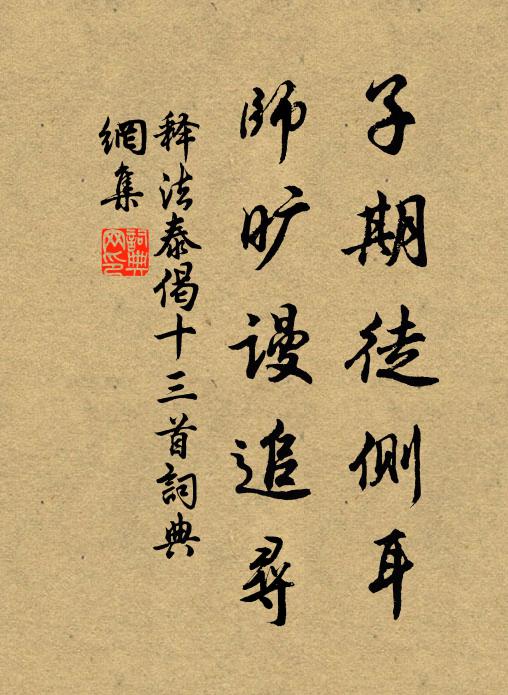 子期徒側耳
師旷謾追尋
释法泰偈十三首詞典
網集
詞典
网印